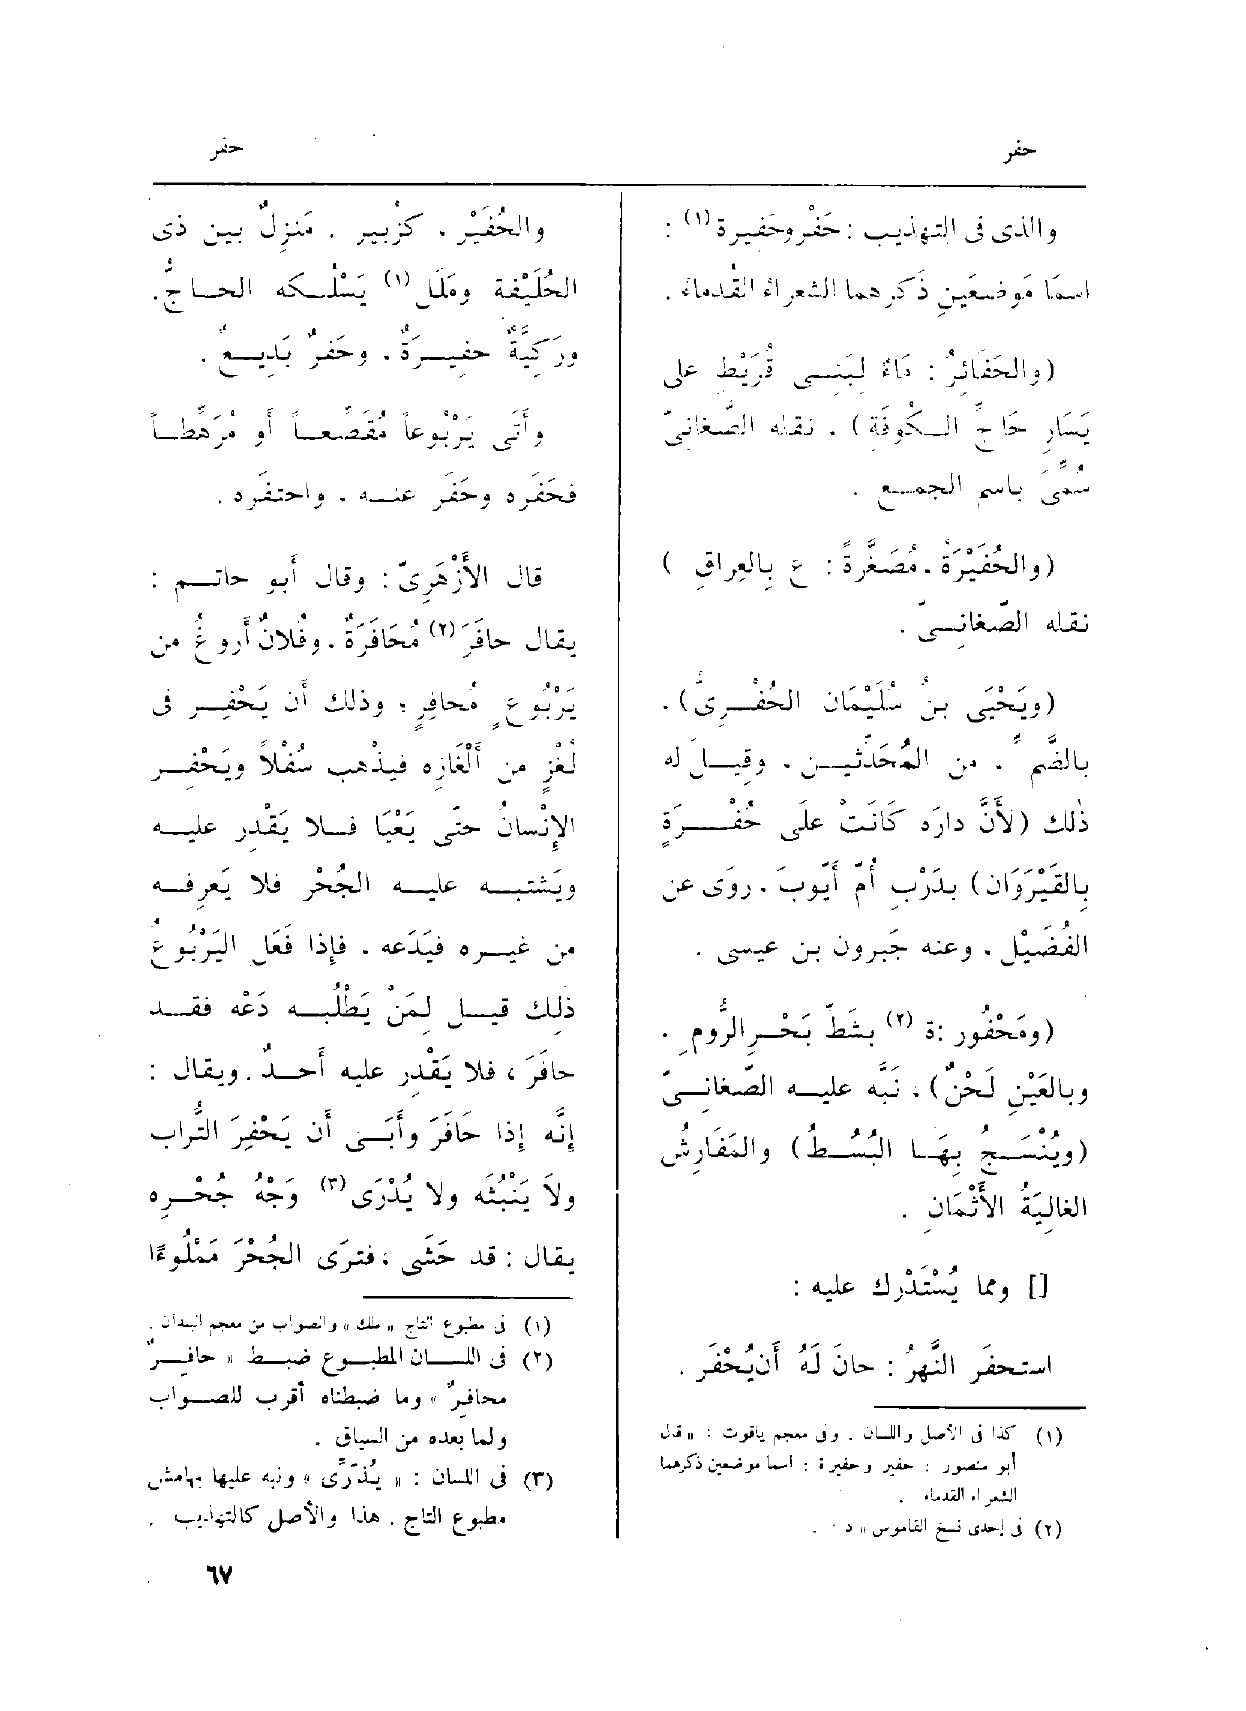 حفر
حفر
والذى فى التهذيب : حَفْر وحَفِيرة (١) :
اسمَا مَوضعَينِ ذَكرهما الشعراءُ القُدماءُ .
(والحَفَائرُ : مَاءٌ لِبَنِــى قُرَيْط على
يَسَارِ حَاجِّ الــكُوفَة) . نقله الصَّغانىّ
سُمِّىَ باسم الجمــع .
(والحُفَيْرَةُ . مُصَغَّرةً : ع بِالعِراقِ )
نقله الصّغانــىّ .
(ويَحْيَى بنُ سُلَيْمَان الحُفْــرِىُّ) .
بالضَّم . من المُحَدِّثيــن . وقيــلَ له
ذلك (لأَنَّ دارَه كَانَتْ على حُفْــرَةٍ
بِالقَيْرَوَان) بدَرْبِ أُمِّ أَيُّوبَ . روَى عن
الفُضَيْل . وعنه جَبرون بن عيسى .
(ومَحْفُور :ة (٢) بشَطِّ بَحْــرِ الرُّومِ .
وبالعَيْنِ لَحْنٌ) . نَبَّه عليــه الصَّغانــىّ
(ويُنْســجُ بِهَــا البُسُــطُ) والمَفَارِشُ
الغالِيَةُ الأَثْمَان .
[] ومما يُسْتَدْرك عليه :
استحفَر النَّهرُ : حانَ لَهُ أَن يُحْفَر .
(١) كذا فى الأصل واللسان . وفى معجم ياقوت : « قال
أبو منصور : حفير وحفيرة : اسما موضعين ذكرهما
الشعراء القدماء .
(٢) فى إحدى نسخ القاموس « د »
والحُفَيْر . كزُبير . مَنزِلٌ بين ذى
الحُلَيْفة ومَلَل (١) يَسْلُــكه الحــاجُّ.
ورَكِيَّةٌ حفِيــرَةٌ . وحَفَرٌ بَدِيــعٌ .
وأَتَى يَرْبُوعاً مُقَصِّعــاً أو مُرَهِّطــاً
فحَفَره وحَفَر عنــه . واحتفَره .
قال الأَزْهَرِىّ : وقال أبو حاتــم :
يقال حافَرَ (٢) مُحَافَرَةً . وفُلانٌ أَروغُ من
يَرْبُوعٍ مُحافِرٍ ؛ وذلك أَن يَحْفِــر فى
لُغزٍ من أَلْغَازِه فيذْهب سُفْلاً ويَحْفــر
الإِنْسانُ حتى يَعْيَا فــلا يَقْدر عليــه
ويَشتبــه عليــه الجُحْر فلا يَعرِفــه
من غيــره فيَدَعه . فإِذا فَعَل اليَرْبُوعُ
ذلك قيــل لمَنْ يَطْلُبــه دَعْه فقــد
حافَرَ ، فلا يَقْدِر عليه أَحــدٌ . ويقال :
إِنَّه إِذا حَافَرَ وأَبَــى أَن يَحْفِرَ التُّراب
ولاَ يَنْبُثَه ولا يُدْرَى (٣) وَجْهُ جُحْــرِه
يقال : قد حَثَى ؛ فترَى الجُحْرَ مَمْلُوءًا
(١) فى مطبوع التاج « ملك » والصواب من معجم البلدان .
(٢) فى اللســان المطبــوع ضبــط « حافِــرٌ
محافِرٌ » وما ضبطناه أقرب للصــواب
ولما بعده من السياق .
(٣) فى اللسان : « يُذَرَّى » ونبه عليها بهامش
مطبوع التاج . هذا والأصل كالتهذيب .
٦٧